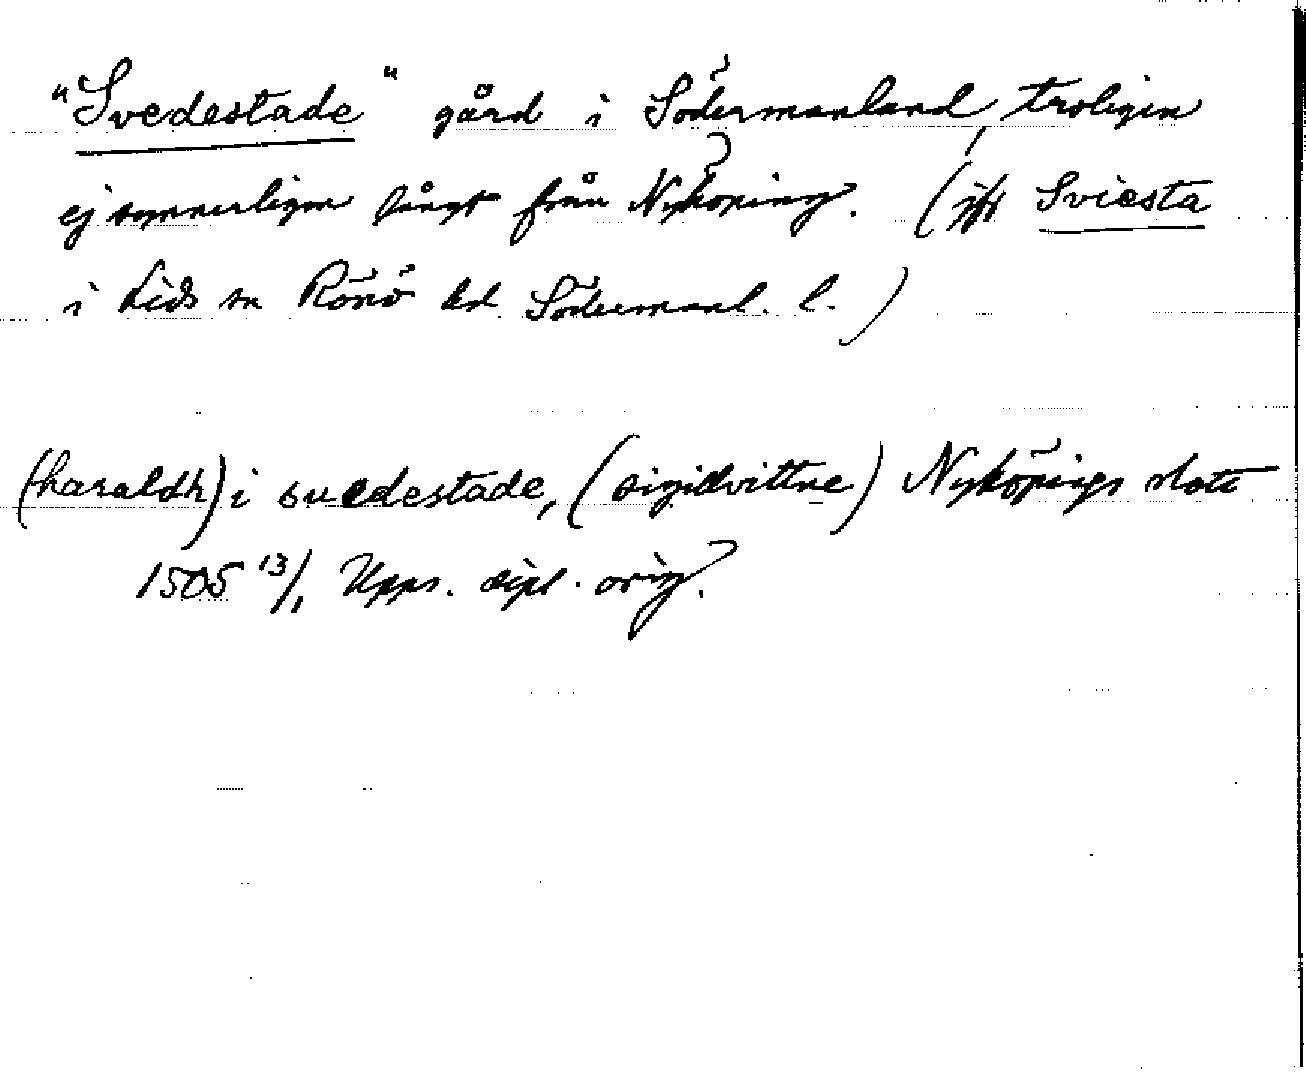 "Svedestade" gård i Södermanland, troligen
ej synnerligen långt från Nyköping. (jfr Sviesta
i Lids sn Rönö hd Södermanl. l.)
(haraldh) i suedestade, (sigillvittne) Nyköpings slott
1505 13/1 Upps. dipl. orig.